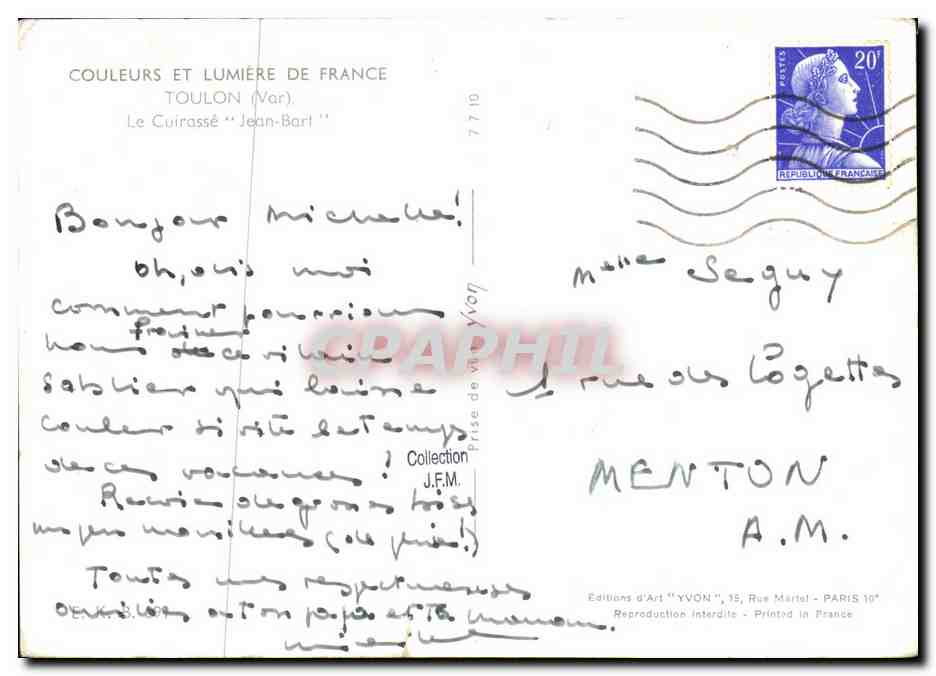 COULEURS ET LUMIÈRE DE FRANCE
TOULON (Var).
Le Cuirassé "Jean-Bart"
Bonjour Michelle!
Oh, dis moi
comment pourrions
freiner
nous ce vilain
sablier qui laisse
couler si vite le temps
de ces vacances!
Reçois de grosses bises
un peu mouillées (de pluie!)
Toutes mes respectueuses
amitiés à ton papa et ta maman.
7 7 10
Prise de vue Yvon
CPAPHIL
Collection
J.F.M.
POSTES
20F
REPUBLIQUE FRANÇAISE
Melle Seguy
1 rue des Logettes
MENTON
A.M.
Editions d'Art "YVON", 15, Rue Martel - PARIS 10e
Reproduction Interdite - Printed in France